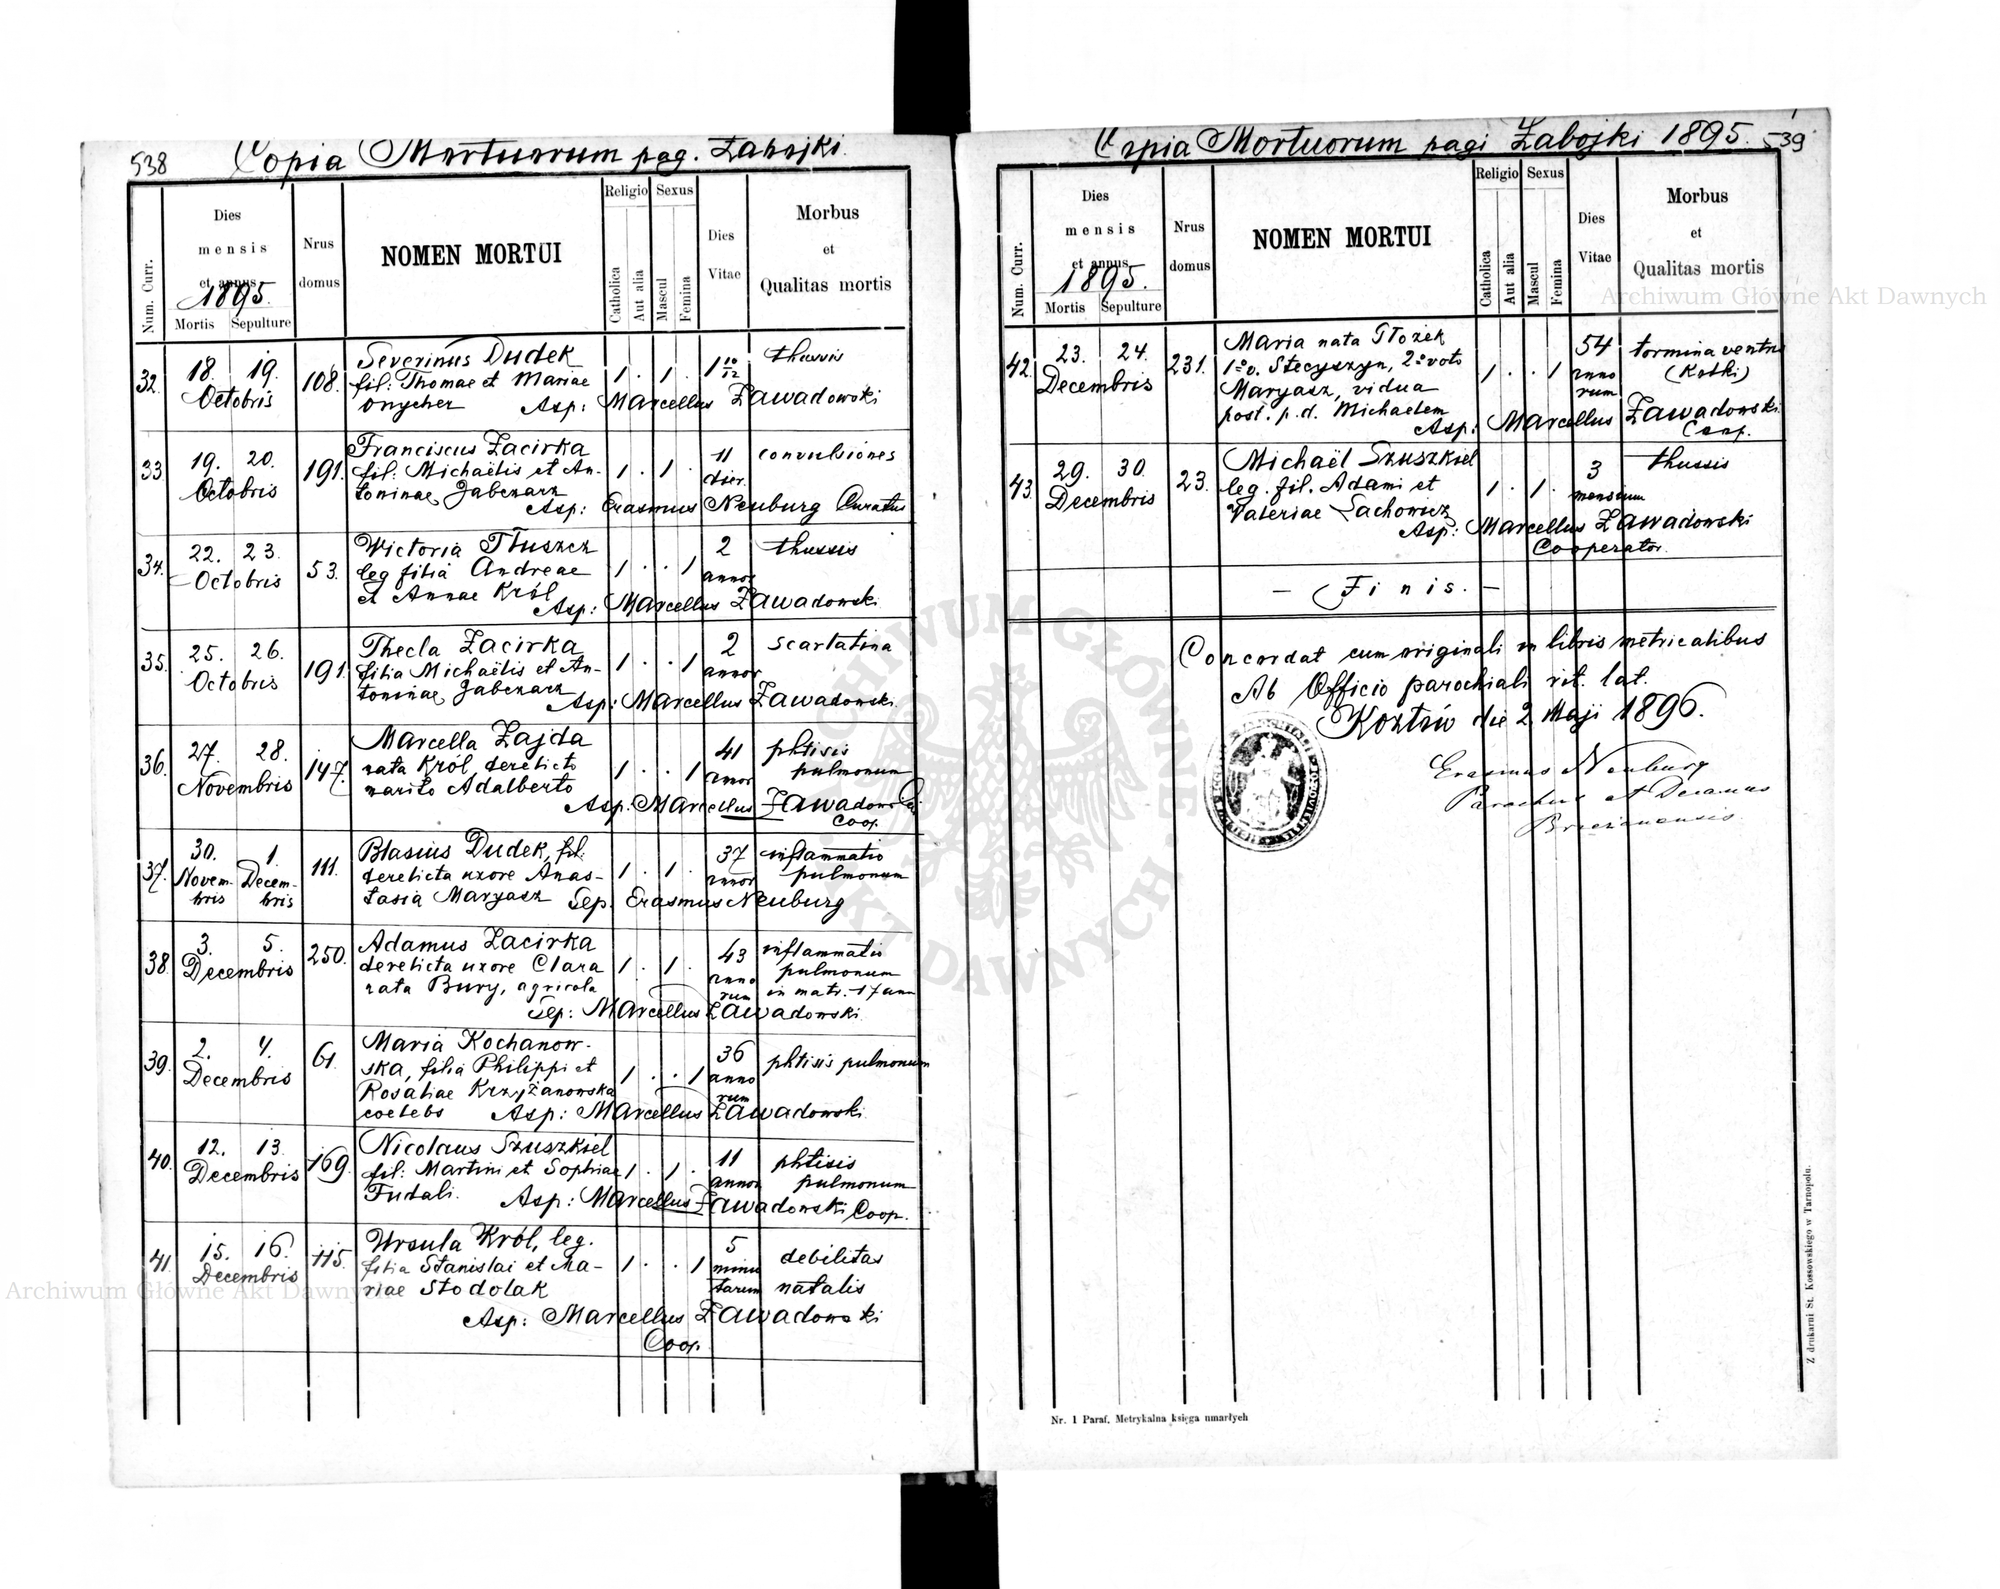 538
Copia Mortuorum pag. Zabojki.
Num. Curr.
Dies
mensis
et annus
1895.
Mortis Sepulture
Nrus
domus
NOMEN MORTUI
Religio
Catholica
Aut alia
Sexus
Mascul
Femina
Dies
Vitae
Morbus
et
Qualitas mortis
32. 18. 19. 108. Severinus Dudek 1 . 1 . 1 10/12 thussis
Octobris fil: Thomae et Mariae
Onycher Asp: Marcellus Zawadowski
33 19. 20. 191. Franciscus Zacirka 1 . 1 . 11 convulsiones
Octobris fil: Michaëlis et An- dier.
toninae Jabczarz
Asp: Erasmus Neuburg Curatus
34. 22. 23. 53. Wictoria Tłuszcz 1 . . 1 2 thussis
Octobris leg filia Andreae annor
et Annae Król
Asp: Marcellus Zawadowski
35. 25. 26. 191. Thecla Zacirka 1 . . 1 2 scarlatina
Octobris filia Michaëlis et An- annor
toninae Jabczarz
Asp: Marcellus Zawadowski.
36. 27. 28. 147. Marcella Zajda 1 . . 1 41 phtisis
Novembris nata Król derelicto annor pulmonum
marito Adalberto
Asp: Marcellus Zawadowski
Coop.
37. 30. 1. 111. Blasius Dudek, fil. 1 . 1 . 37 inflammatio
Novem- Decem- derelicta uxore Anas- annor pulmonum
bris bris tasia Maryasz Sep. Erasmus Neuburg
38. 3. 5. 250. Adamus Zacirka 1 . 1 . 43 inflammatio
Decembris derelicta uxore Clara anno pulmonum
nata Bury, agricola rum in matr. 17 ann
Sep: Marcellus Zawadowski
39. 2. 4. 61. Maria Kochanow- 1 . . 1 36 phtisis pulmonum
Decembris ska, filia Philippi et anno
Rosaliae Krzyżanowska rum
coelebs Asp: Marcellus Zawadowski
40. 12. 13. 169. Nicolaus Szuszkiel 1 . 1 . 11 phtisis
Decembris fil: Martini et Sophiae annor pulmonum
Fudali. Asp: Marcellus Zawadowski Coop.
41. 15. 16. 115. Ursula Król, leg. 1 . . 1 5 debilitas
Decembris filia Stanislai et Ma- minu natalis
riae Stodolak tarum
Asp: Marcellus Zawadowski
Coop.
Copia Mortuorum pagi Zabojki 1895. 539
Num. Curr.
Dies
mensis
et annus
1895.
Mortis Sepulture
Nrus
domus
NOMEN MORTUI
Religio
Catholica
Aut alia
Sexus
Mascul
Femina
Dies
Vitae
Morbus
et
Qualitas mortis
42. 23. 24. 231. Maria nata Stożek 1 . . 1 54 tormina ventris
Decembris 1°v. Stecyszyn, 2°voto anno (Kolki)
Maryasz, vidua rum
post. p.d. Michaelem
Asp: Marcellus Zawadowski
Coop.
43. 29. 30. 23. Michaël Szuszkiel 1 . 1 . 3 thussis
Decembris leg. fil. Adami et mensium
Valeriae Lachowicz
Asp: Marcellus Zawadowski
Cooperator.
- Finis. -
Concordat cum originali in libris metricalibus
Ab Officio parochiali rit. lat.
Kozłów die 2 Maji 1896.
Erasmus Neuburg
Parochus et Decanus
Brzezanensis
Nr. 1 Paraf. Metrykalna księga umarłych
Z drukarni St. Kossowskiego w Tarnopolu.
Archiwum Główne Akt Dawnych
Archiwum Główne Akt Dawnych
ARCHIWUM GŁÓWNE AKT DAWNYCH